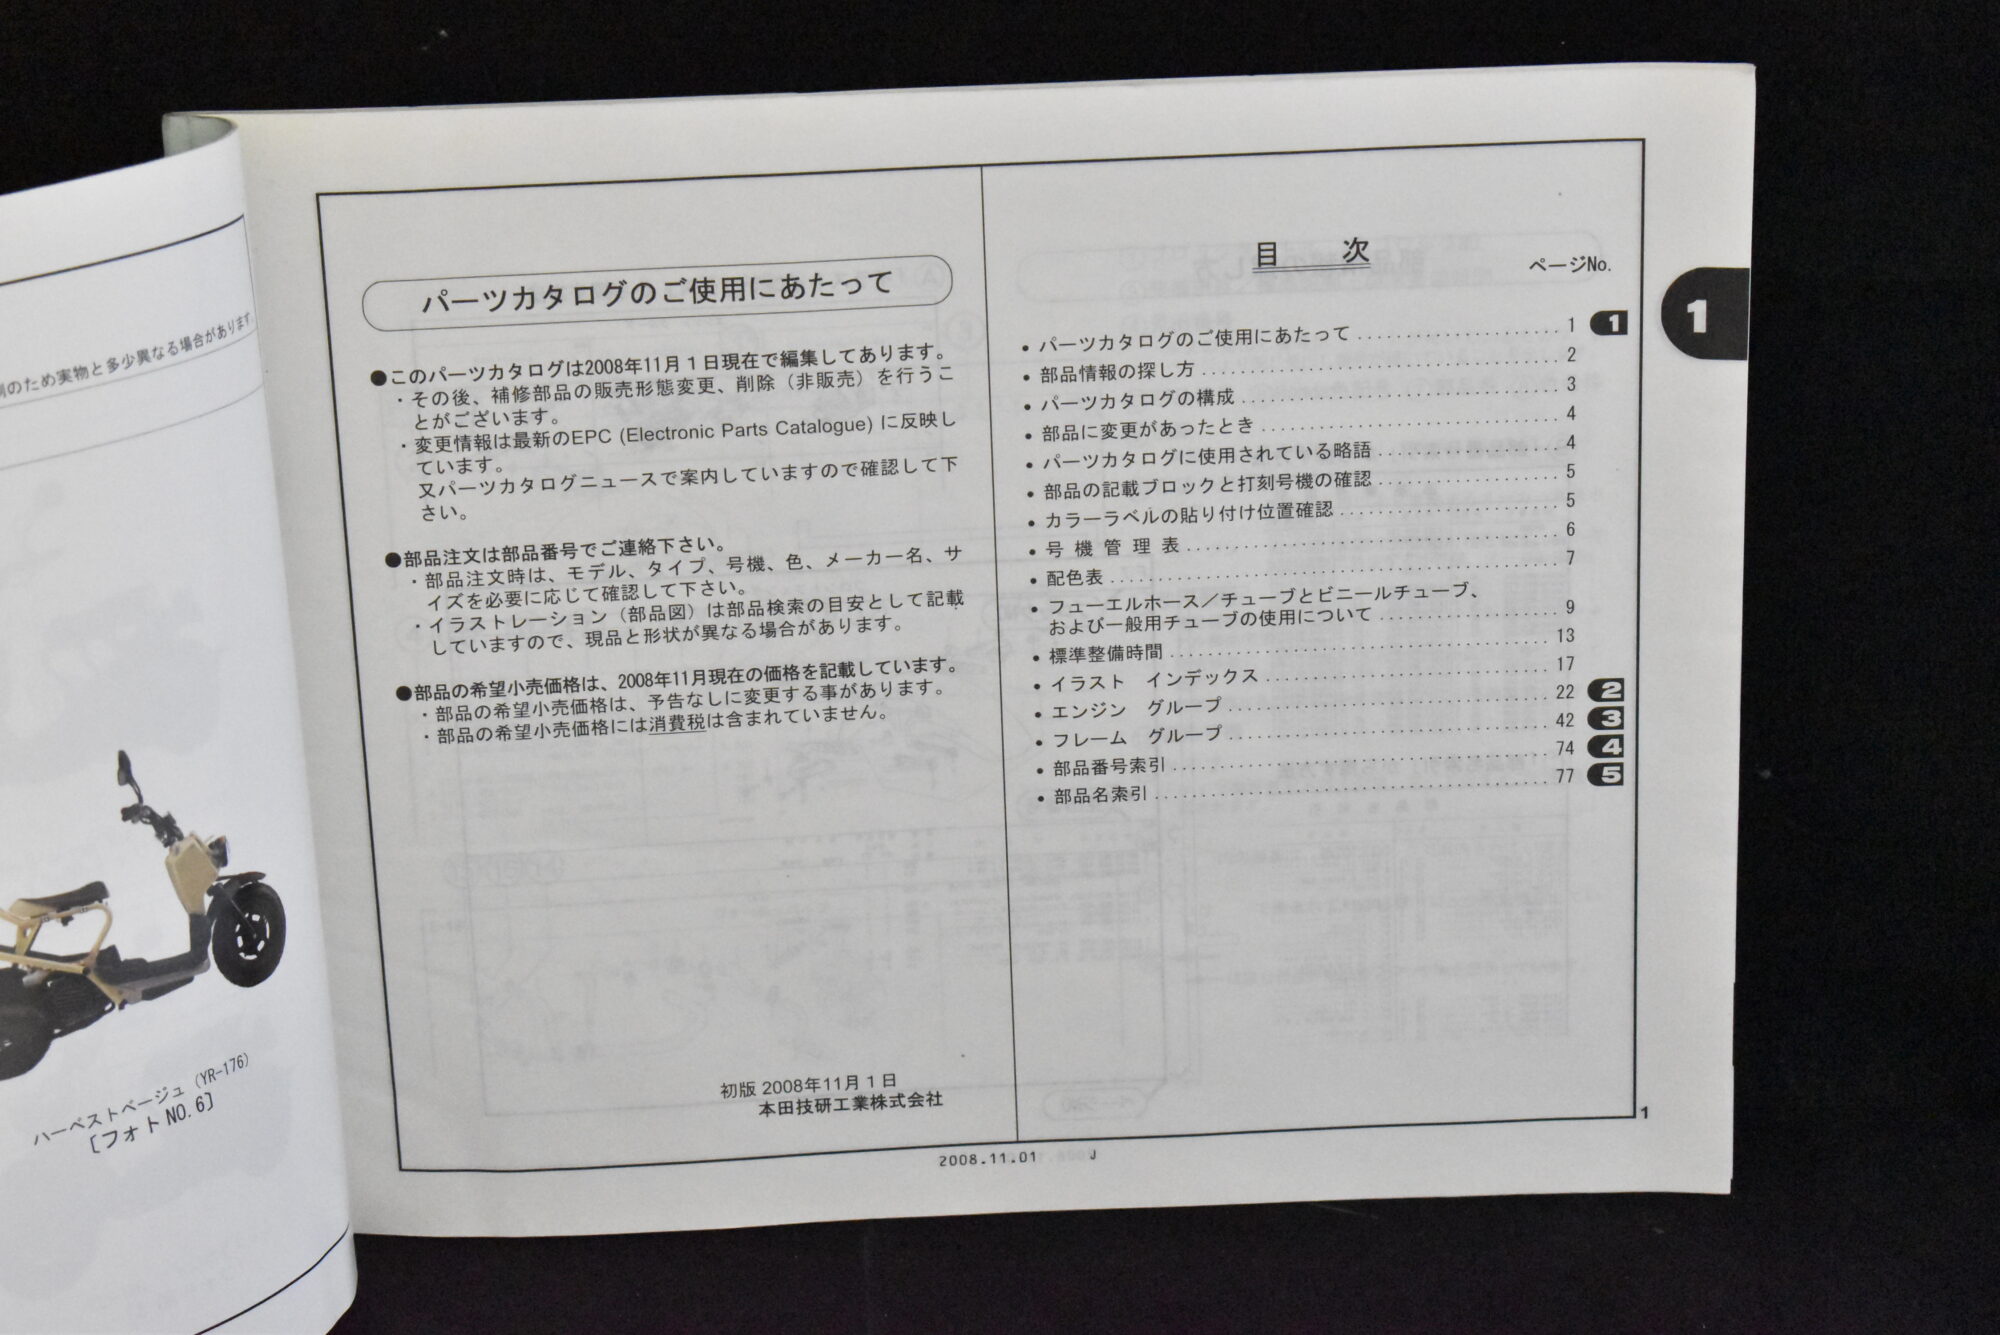 のため実物と多少異なる場合があります。
ハーベストベージュ (YR-176)
[フォトNO.6]
パーツカタログのご使用にあたって
●このパーツカタログは2008年11月1日現在で編集してあります。
・その後、補修部品の販売形態変更、削除（非販売）を行うこ
とがございます。
・変更情報は最新のEPC (Electronic Parts Catalogue) に反映し
ています。
又パーツカタログニュースで案内していますので確認して下
さい。
●部品注文は部品番号でご連絡下さい。
・部品注文時は、モデル、タイプ、号機、色、メーカー名、サ
イズを必要に応じて確認して下さい。
・イラストレーション（部品図）は部品検索の目安として記載
していますので、現品と形状が異なる場合があります。
●部品の希望小売価格は、2008年11月現在の価格を記載しています。
・部品の希望小売価格は、予告なしに変更する事があります。
・部品の希望小売価格には消費税は含まれていません。
初版 2008年11月1日
本田技研工業株式会社
目　次
ページNo.
• パーツカタログのご使用にあたって .................... 1 1
• 部品情報の探し方 .................... 2
• パーツカタログの構成 .................... 3
• 部品に変更があったとき .................... 4
• パーツカタログに使用されている略語 .................... 4
• 部品の記載ブロックと打刻号機の確認 .................... 5
• カラーラベルの貼り付け位置確認 .................... 5
• 号 機 管 理 表 .................... 6
• 配色表 .................... 7
• フューエルホース／チューブとビニールチューブ、
および一般用チューブの使用について .................... 9
• 標準整備時間 .................... 13
• イラスト　インデックス .................... 17
• エンジン　グループ .................... 22 2
• フレーム　グループ .................... 42 3
• 部品番号索引 .................... 74 4
• 部品名索引 .................... 77 5
1
1
2008.11.01 J